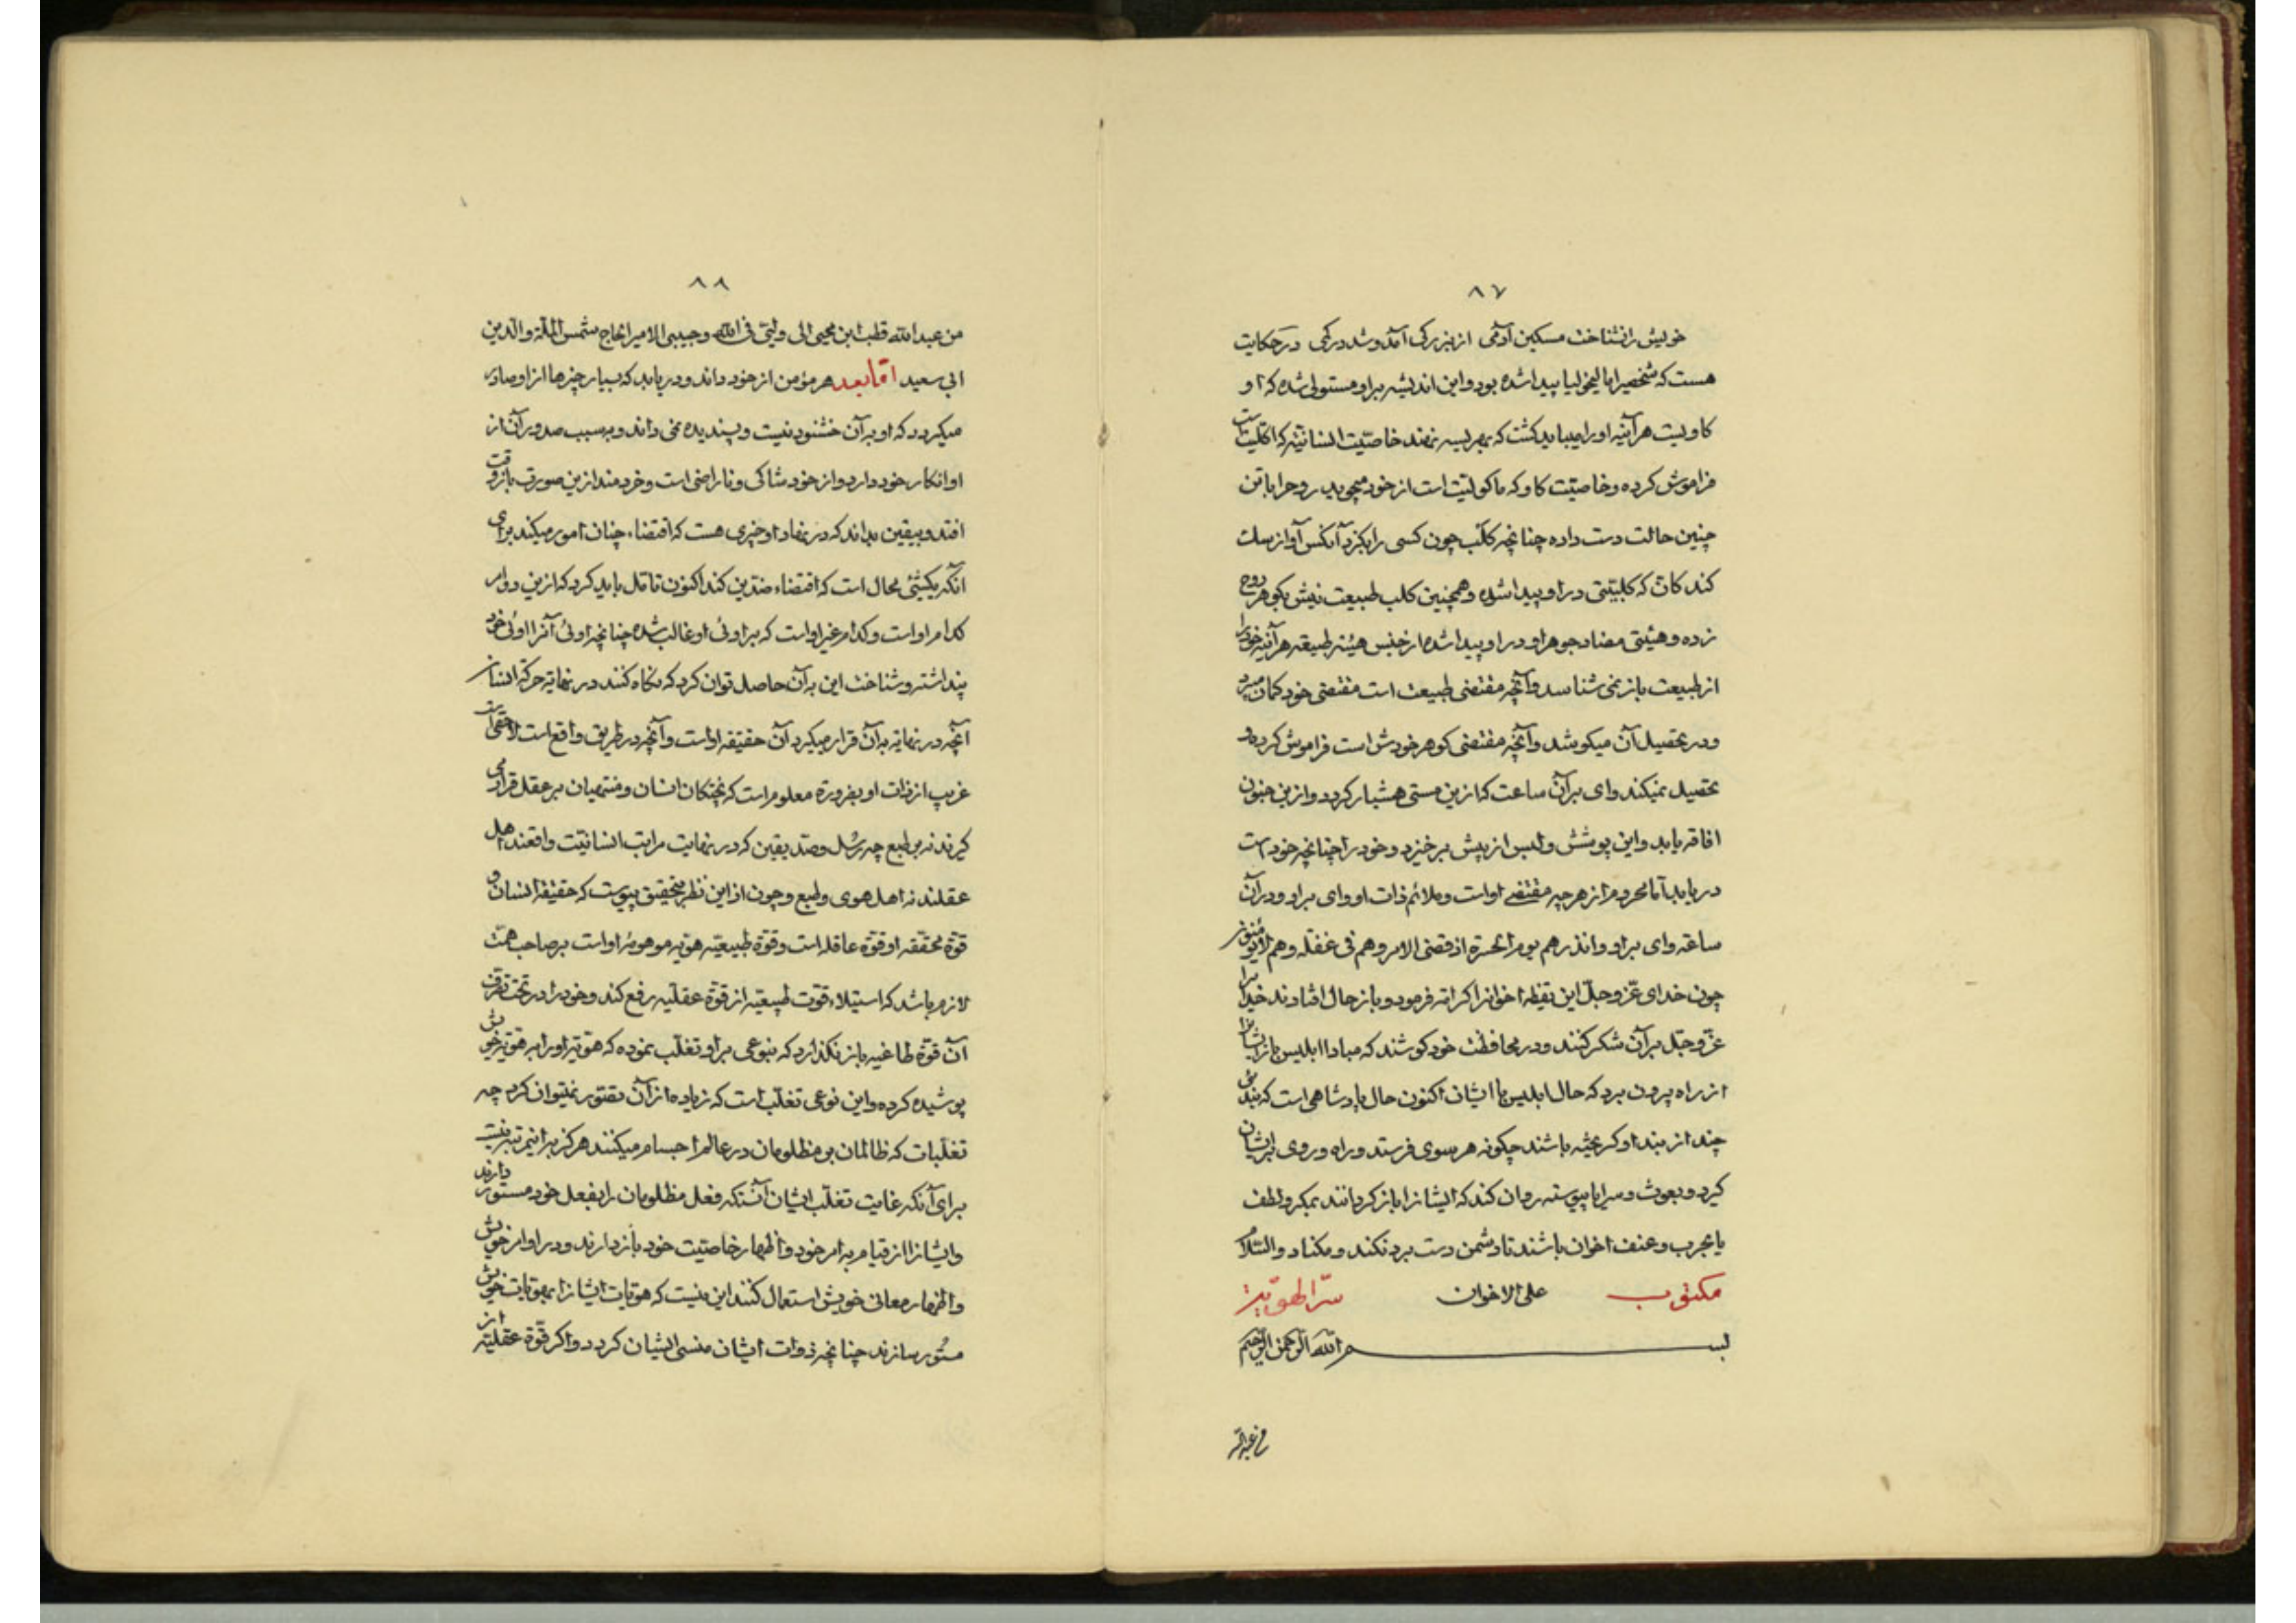 ۸۷
خویش را نشناخت مسکین آدمی از بزرگی آمد و شد در کمی در حکایت
هست که شخصیرا مالیخولیا پیدا شده بود و این اندیشه براو مستولی شده که او
کاویست هر آینه اورا میباید کشت که بهریسه نهند خاصیّت انسانیّته که اکلیّت است
فراموش کرده و خاصیّت کاو که ماکولیّت است از خود میجوید روحرا باتن
چنین حالت دست داده چنانچه کلب چون کسی را بکزد آنکس آواز سک
کند کانّ که کلبیّتی در او پیدا شده و همچنین کلب طبیعت نیش بکوهر روح
زده و هیئتی مضاد جوهر او در او پیدا شده از جنس هیئة طبیعة هر آینه خودرا
از طبیعت باز نمی شناسد و آنچه مقتضی طبیعت است مقتضی خود کمان میبرد
و در تحصیل آن میکوشد و آنچه مقتضی کوهر خودش است فراموش کرده و
تحصیل نمیکند وای بر آن ساعت که از این مستی هشیار کردد و از ین جنون
افاقه یابد و این پوشش و لبس از پیش برخیزد و خود را چنانچه خود است
دریابد اما محروم از هرچه مقتضی اواست و ملائم ذات او وای براو و در آن
ساعة وای براو وانذرهم یوم الحسرة اذ قضی الامر وهم فی غفلة وهم لایؤمنون
چون خدای عزّ وجلّ این تیقظ اخوانرا کرامة فرمود و باز حال افتادند خدایرا
عزّ وجلّ برآن شکر کنند و در محافظت خود کوشند که مبادا ابلیس باز ایشانرا
از راه بیرون برد که حال ابلیس با ایشان اکنون حال پادشاهی است که بندئی
چند از بند او کریخته باشند چکونه هر سوی فرستد و راه و روی بر ایشان
کیرد و بعوث و سرایا پیوسته روان کند که ایشانرا باز کردانند بمکر و لطف
یا بحرب و عنف اخوان باشند تا دشمن دست برد نکند و مکناد والسّلام
مکتوب علی الاخوان سرّ الهویّة
بسم الله الرّحمن الرّحیم
من عبدالله
۸۸
من عبدالله قطب ابن محیی الی ولیّی فی الله وحبیبی الامیر الحاج شمس الملّة والدّین
ابی سعید امّا بعد هر مؤمن از خود داند و دریابد که بسیار چیزها از او صادر
میکردد که او بر آن خشنود نیست و پسندیده نمی داند و بسبب صدور آن از
او انکار خود دارد و از خود شاکی و ناراضی است و خردمند ازین صورت بازوقت
افتد و بیقین بداند که در نهاد او چیزی هست که اقتضاء چنان امور میکند برای
آنکه یکشئ محال است که اقتضاء ضدّین کند اکنون تامّل باید کرد که ازین دو امر
کدام او است و کدام غیر اواست که بر اوئی او غالب شده چنانچه اوئی آنرا اوئی خود
پنداشته و شناخت این به آن حاصل توان کرد که نکاه کنند در نهایة حرکة انسان
آنچه در نهایة به آن قرار میکیرد آن حقیقة اواست و آنچه در طریق واقع است لاحقی است
غریب از ذات او بضرورة معلوم است که پختکان انسان و منتهیان بر عقل قرار می
کیرند نه بر طبع چه رسُل و صدّیقین که در نهایت مراتب انسانیّت واقعند اهل
عقلند نه اهل هوی و طبع و چون از این نظر بتحقیق پیوست که حقیقة انسان و
قوّة محقّقه او قوّة عاقله است و قوّة طبیعیّه هویّه موهومهٔ اواست بر صاحب همّت
لازم باشد که استیلاء قوّت طبیعیّه از قوّة عقلیّه رفع کند و خود را در تحت تصرّف
آن قوّة طاغیه باز نکذارد که بنوعی براو تغلّب نموده که هویّة اورا به هویّة خویش
پوشیده کرده و این نوعی تغلّب است که زیاده از آن تصوّر نمیتوان کرد چه
تغلّبات که ظالمان بر مظلومان در عالم اجسام میکنند هرکز براین مرتبه نیست
برای آنکه غایت تغلّب ایشان آنستکه فعل مظلومان را بفعل خود مستور دارند
و ایشانرا از قیام به امر خود و اظهار خاصیّت خود بازدارند و در اوامر خویش
و اظهار معانی خویش استعمال کنند این نیست که هویّات ایشانرا بهویّات خویش
مستور سازند چنانچه ذوات ایشان منسی ایشان کردد و اکر قوّة عقلیّه از